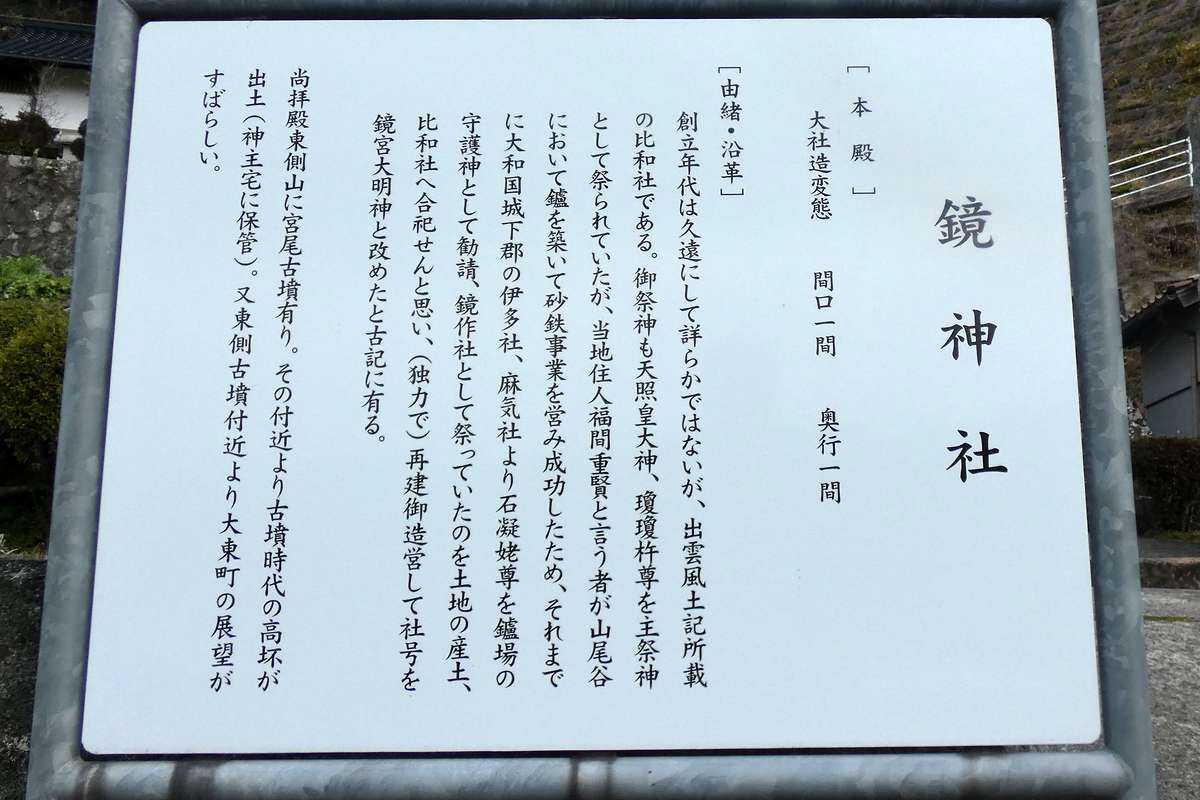 鏡神社
［本殿］
大社造変態　間口一間　奥行一間
［由緒・沿革］
創立年代は久遠にして詳らかではないが、出雲風土記所載
の比和社である。御祭神も天照皇大神、瓊瓊杵尊を主祭神
として祭られていたが、当地住人福間重賢と言う者が山尾谷
において鑪を築いて砂鉄事業を営み成功したため、それまで
に大和国城下郡の伊多社、麻気社より石凝姥尊を鑪場の
守護神として勧請、鏡作社として祭っていたのを土地の産土、
比和社へ合祀せんと思い、（独力で）再建御造営して社号を
鏡宮大明神と改めたと古記に有る。
尚拝殿東側山に宮尾古墳有り。その付近より古墳時代の高坏が
出土（神主宅に保管）。又東側古墳付近より大東町の展望が
すばらしい。